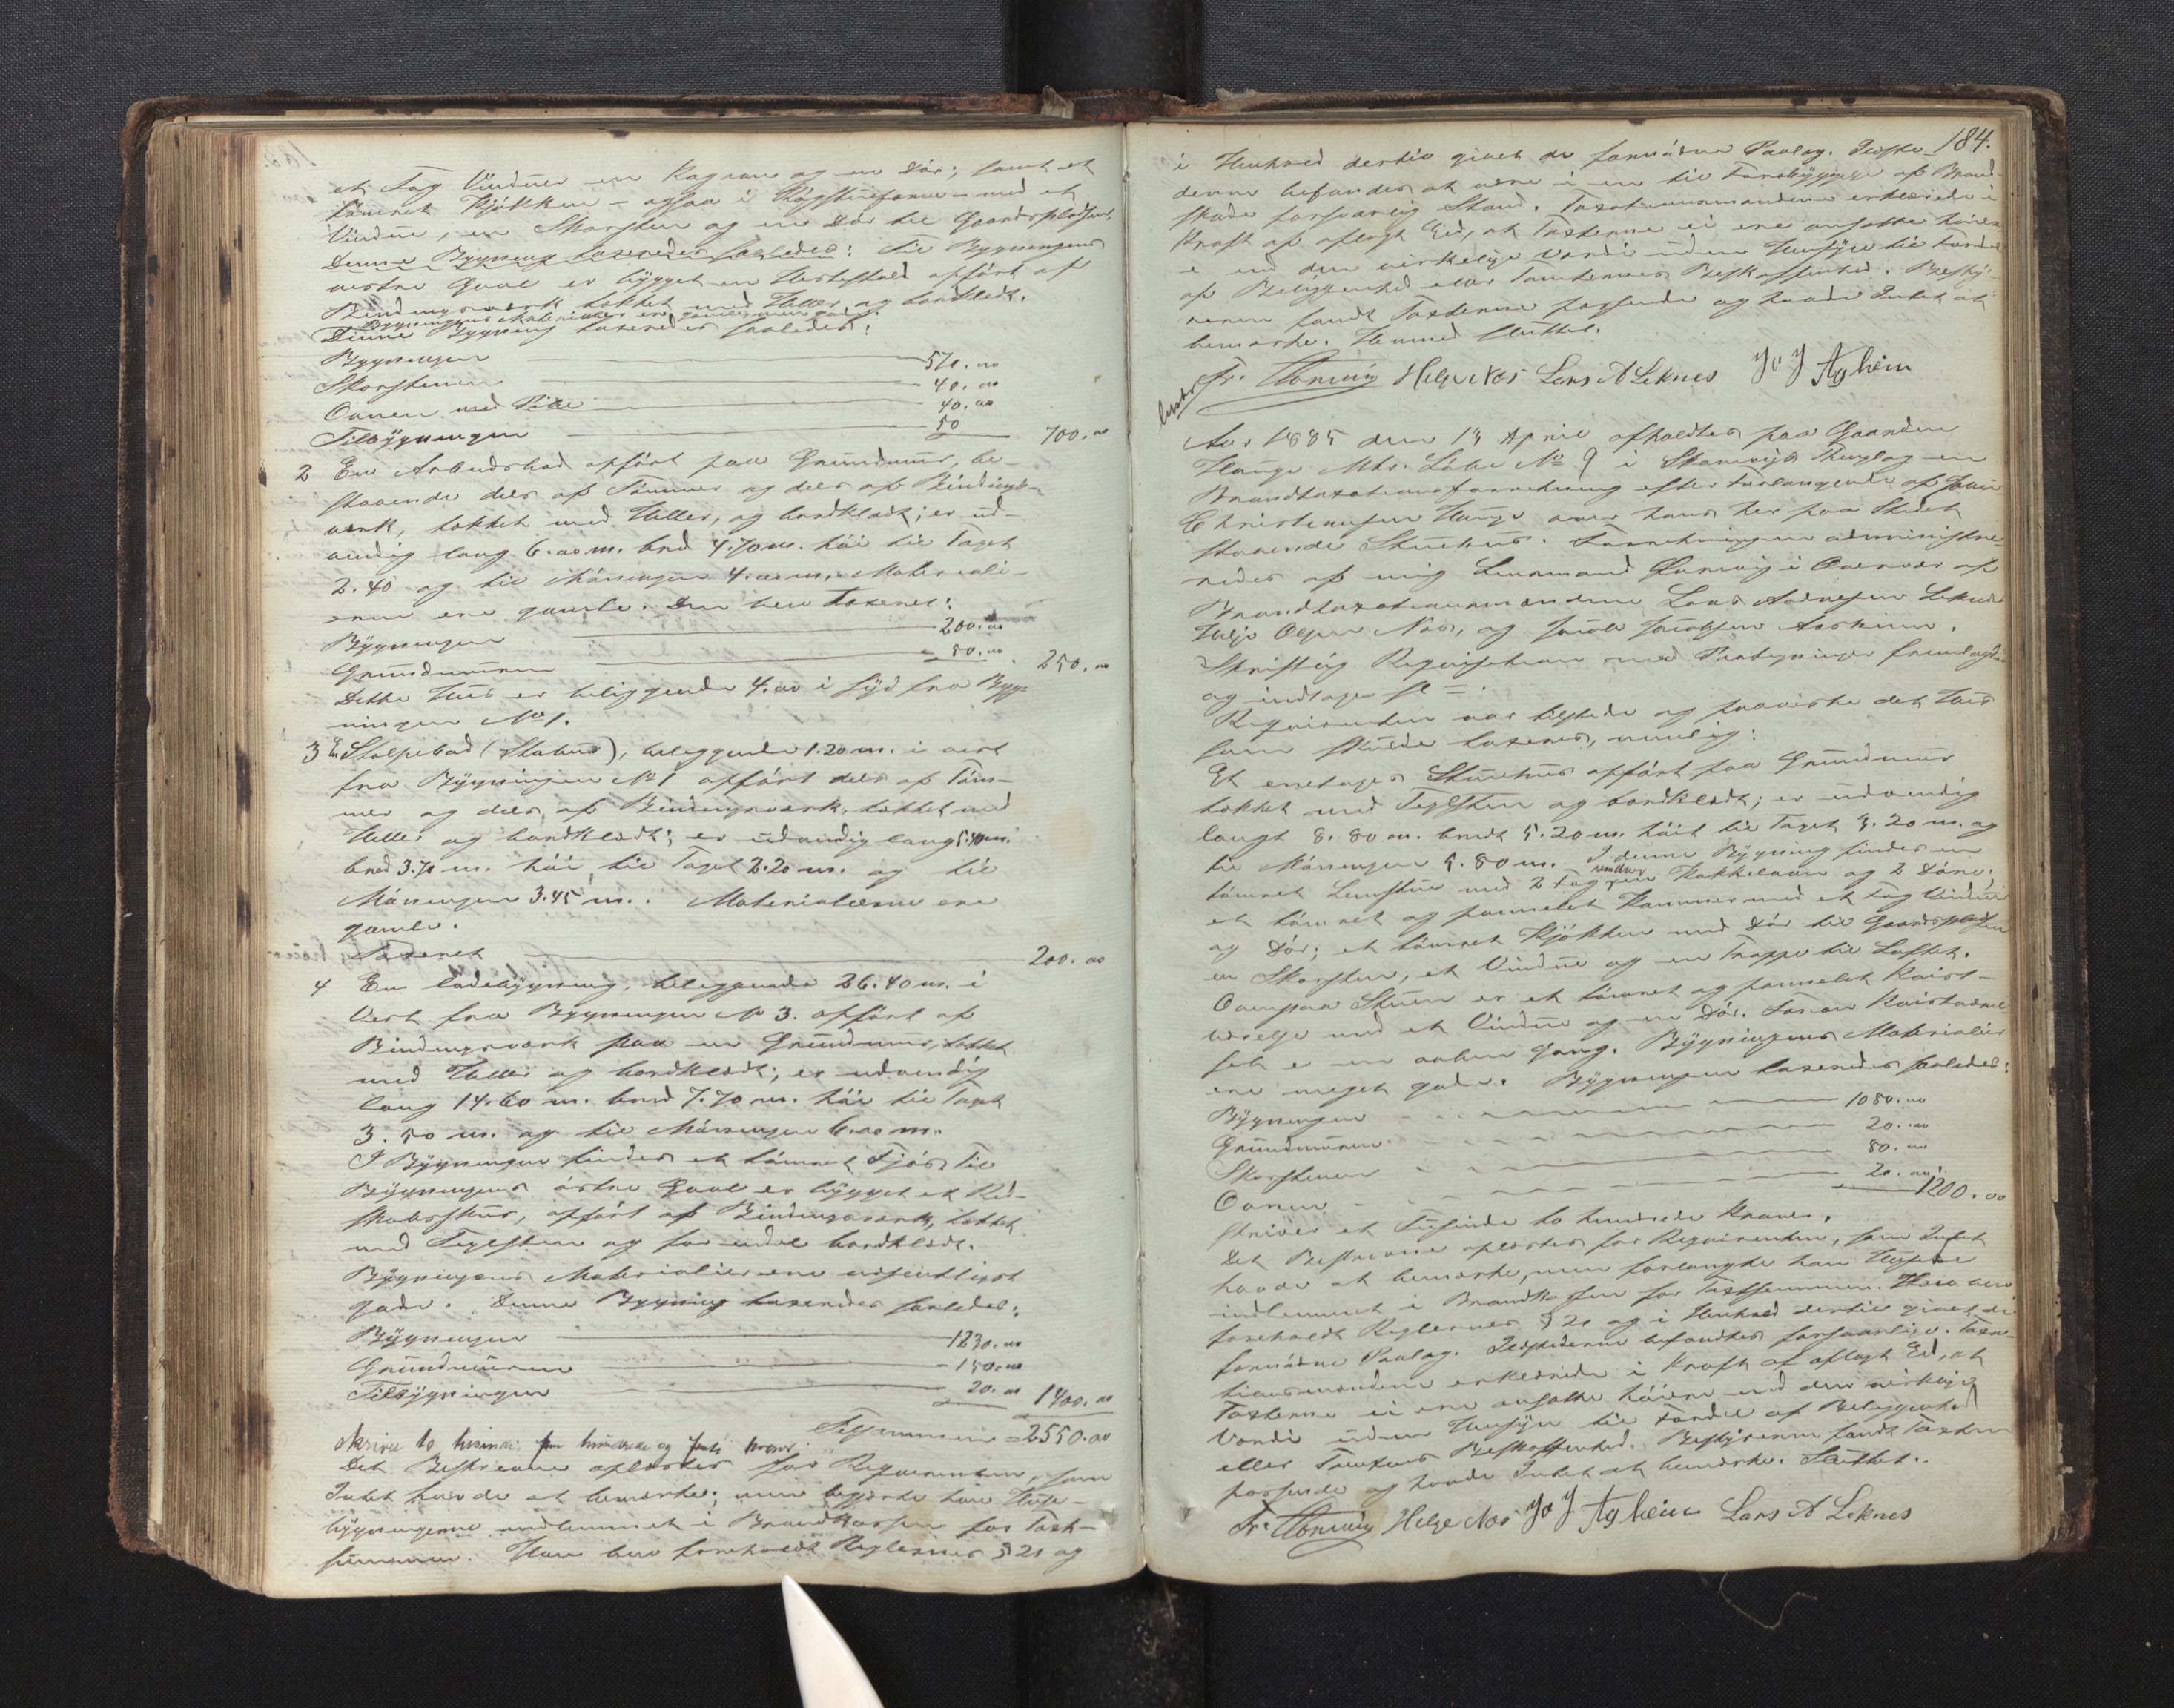 et Fag Vinduer en Kagovn og en Dør; samt et
tømret Kjøkken – ogsaa i Røgstueform – med et
Vindue, en Skorsten og en Dør til Gaardspladsen.
Denne Bygning taxeredes saaledes: Til Bygningens
vestre Gavl er bygget en Hestestald opført af
Bindingsværk tækket med Heller og bordklædt.
Bygningens Materialier ere gamle, men gode.
Denne Bygning taxeredes saaledes:
Bygningen 570.00
Skorstenen 40.00
Ovnen med Pibe 40.00
Tilbygningen 50 700.00
2 En Arbudsbod opført paa Grundmur, be-
staaende dels af Tømmer og dels af Bindings-
værk, tækket med Heller, og bordklædt; er ud-
vendig lang 6.00 m. bred 4.70 m. høi til Taget
2.40 og til Mønningen 4.00 m. Materiali-
erne ere gamle. Den blev taxeret:
Bygningen 200.00
Grundmuren 50.00 250.00
Dette Hus er beliggende 4.00 i Syd fra Byg-
ningen No 1.
3 En Stolpebod (Stabur), beliggende 1.20 m. i vest
fra Bygningen No 1 opført dels af Tøm-
mer og dels af Bindingsværk, tækket med
Heller og bordklædt; er udvendig lang 5.40 m.
bred 3.70 m. høi til Taget 2.20 m. og til
Mønningen 3.45 m. Materialierne ere
gamle.
Taxeret 200.00
4 En Ladebygning, beliggende 26.40 m. i
Vest fra Bygningen No 3. opført af
Bindingsværk paa en Grundmur, tækket
med Heller og bordklædt; er udvendig
lang 14.60 m. bred 7.70 m. høi til Taget
3.50 m. og til Mønningen 6.00 m.
I Bygningen findes et tømret Fjøs. Til
Bygningens østre Gavl er bygget et Red-
skabsskur, opført af Bindingsværk, tækket
med Teglsten og for endel bordklædt.
Bygningens Materialier ere væsentligst
gode. Denne Bygning taxeredes saaledes:
Bygningen 1230.00
Grundmuren 150.00
Tilbygningen 20.00 1400.00
Tilsammen = 2550.00
skriver to tusinde fem hundrede og femti kroner.
Det Beskrevne oplæstes for Reqvirenten, som
Intet havde at bemærke; men begjærte han Huse-
bygningerne indlemmet i Brandkassen for Taxt-
summen. Han blev foreholdt Reglernes § 21 og
184.
i Henhold dertil givet de fornødne Paalæg. Ildste-
derne befandtes at være i en til Forebyggelse af Brand-
skade forsvarlig Stand. Taxationsmændene erklærede i
Kraft af aflagt Ed, at Taxterne ei ere ansatte høiere
end den virkelige Værdi uden Hensyn til Fordel
af Beliggenhed eller Tomternes Beskaffenhed. Besty-
reren fandt Taxterne passende og havde Intet at
bemærke. Hermed sluttet.
Fr. Helge Næs Lars A Leknes J J Asheim
Aar 1885 den 14 April afholdtes paa Gaarden
Hauge Mtr. Løbe No 9 i Skaanevigs Thinglag en
Brandtaxationsforretning efter Forlangende af
Christensen Hauge over hans her paa Stedet
staaende Stuehus. Forretningen administre-
redes af mig Lensmand i Overvær af
Brandtaxationsmændene Lars Leknes
Helje Olsen Næs, og Jacob Jacobsen Asheim.
Skriftlig Reqvisition med Paategninger fremlagdes
og indtages sl =
Reqvirenten var tilstede og paaviste det Hus
som skulde taxeres, nemlig:
Et enetages Stuehus opført paa Grundmur
tækket med Teglsten og bordklædt; er udvendig
langt 8.80 m. bredt 5.20 m. høit til Taget 3.20 m. og
til Mønningen 5.80 m. I denne Bygning findes en
tømret Lemstue med 2 Fag vinduer, en Kakkelovn og 2 Døre;
et tømret og panelet Kammer med et Fag Vinduer
og Dør; et tømret Kjøkken med Dør til Gaardspladsen
en Skorsten, et Vindue og en Trappe til Loftet.
Ovenpaa Stuen er et tømret og panelet Kvist-
værelse med et Vindue og en Dør. Foran Kvistværel
set er en aaben Gang. Bygningens Materialier
ere meget gode. Bygningen taxeredes saaledes:
Bygningen 1080.00
Grundmuren 20.00
Skorstenen 80.00
Ovnen 20.00 1200.00
skriver et Tusinde to hundrede Kroner.
Det Beskrevne oplæstes for Reqvirenten, som Intet
havde at bemærke, men forlangte han Husene
indlemmet i Brandkassen for Taxtsummen. Han blev
foreholdt Reglernes § 21 og i Henhold dertil givet de
fornødne Paalæg. Ildstederne befandtes forsvarlige. Taxa-
tionsmændene erklærede i Kraft af aflagt Ed, at
Taxterne ei ere ansatte høiere end den virkelige
Værdi uden Hensyn til Fordel af Beliggenhed
eller Tomtens Beskaffenhed. Bestyreren fandt Taxten
passende og havde Intet at bemærke. Sluttet.
Fr. Helge Næs J J Asheim Lars A Leknes